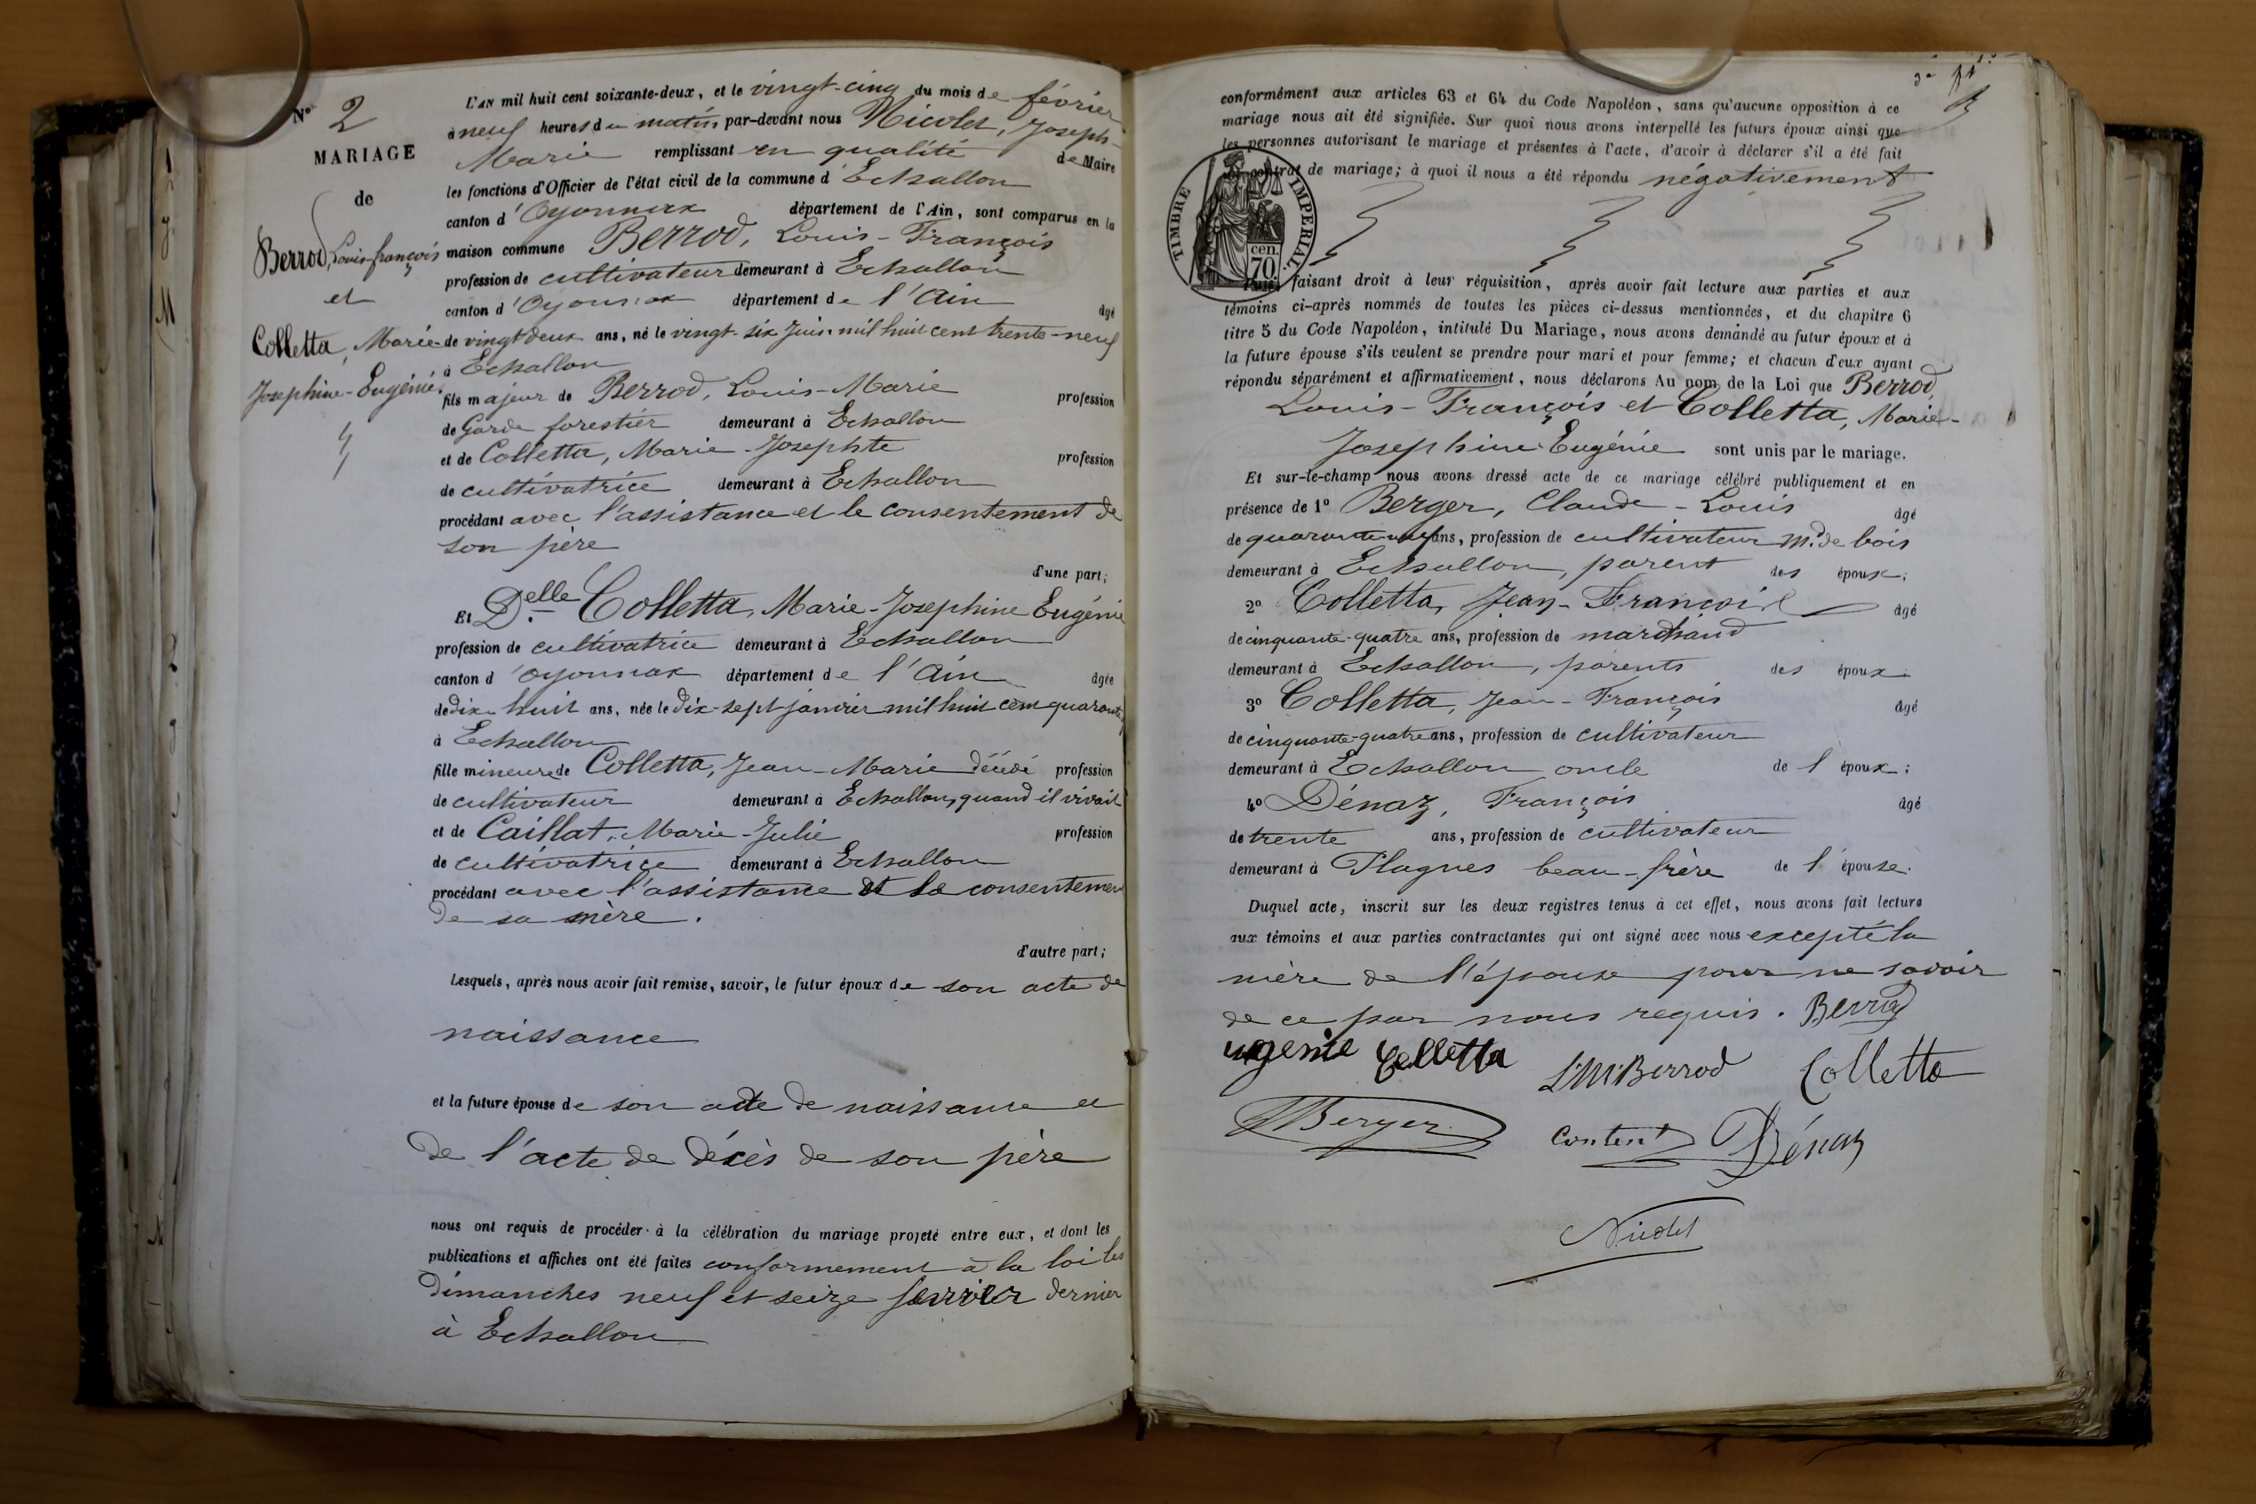 N° 2
MARIAGE
de
Berrod, Louis-françois
et
Colletta, Marie-
Josephine-Eugénie
L'AN mil huit cent soixante-deux, et le vingt-cinq du mois de février
à neuf heures du matin par-devant nous Nicolet, Joseph-
Marie remplissant en qualité de Maire
les fonctions d'Officier de l'état civil de la commune d'Echallon
canton d'Oyonnax département de l'Ain, sont comparus en la
maison commune Berrod, Louis-François
profession de cultivateur demeurant à Echallon
canton d'Oyonnax département de l'Ain âgé
de vingt deux ans, né le vingt-six Juin mil huit cent trente-neuf
à Echallon
fils majeur de Berrod, Louis-Marie profession
de Garde forestier demeurant à Echallon
et de Colletta, Marie-Josephte profession
de cultivatrice demeurant à Echallon
procédant avec l'assistance et le consentement de
son père
d'une part;
Et Delle Colletta, Marie-Josephine Eugénie
profession de cultivatrice demeurant à Echallon
canton d'Oyonnax département de l'Ain âgée
de dix-huit ans, née le dix-sept janvier mil huit cent quarante
à Echallon
fille mineure de Colletta, Jean-Marie décédé profession
de cultivateur demeurant à Echallon, quand il vivait
et de Caillat, Marie-Julie profession
de cultivatrice demeurant à Echallon
procédant avec l'assistance et le consentemen
de sa mère.
d'autre part;
Lesquels, après nous avoir fait remise, savoir, le futur époux de son acte de
naissance
et la future épouse de son acte de naissance et
de l'acte de décès de son père
nous ont requis de procéder à la célébration du mariage projeté entre eux, et dont les
publications et affiches ont été faites conformement à la loi les
dimanches neuf et seize fevrier dernier
à Echallon
conformément aux articles 63 et 64 du Code Napoléon, sans qu'aucune opposition à ce
mariage nous ait été signifiée. Sur quoi nous avons interpellé les futurs époux ainsi que
les personnes autorisant le mariage et présentes à l'acte, d'avoir à déclarer s'il a été fait
contrat de mariage; à quoi il nous a été répondu négativement
TIMBRE IMPERIAL.
70 cen.
Puis, faisant droit à leur réquisition, après avoir fait lecture aux parties et aux
témoins ci-après nommés de toutes les pièces ci-dessus mentionnées, et du chapitre 6
titre 5 du Code Napoléon, intitulé Du Mariage, nous avons demandé au futur époux et à
la future épouse s'ils veulent se prendre pour mari et pour femme; et chacun d'eux ayant
répondu séparément et affirmativement, nous déclarons Au nom de la Loi que Berrod,
Louis-François et Colletta, Marie-
Josephine Eugénie sont unis par le mariage.
Et sur-le-champ nous avons dressé acte de ce mariage célébré publiquement et en
présence de 1° Berger, Claude-Louis âgé
de quarante ans, profession de cultivateur Md de bois
demeurant à Echallon, parent des époux;
2° Colletta, Jean-François âgé
de cinquante-quatre ans, profession de marchand
demeurant à Echallon, parents des époux
3° Colletta, Jean-François âgé
de cinquante-quatre ans, profession de cultivateur
demeurant à Echallon oncle de l'époux;
4° Dénaz, François âgé
de trente ans, profession de cultivateur
demeurant à Plagnes beau-frère de l'épouse.
Duquel acte, inscrit sur les deux registres tenus à cet effet, nous avons fait lecture
aux témoins et aux parties contractantes qui ont signé avec nous excepté la
mère de l'épouse pour ne savoir
de ce par nous requis. Berrod
ugenie Colletta L.M. Berrod Colletta
Berger Content Dénaz
Nicolet